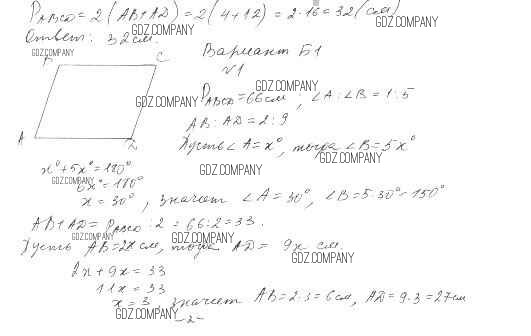 P ABCD = 2(AB+AD) = 2(4+12) = 2·16 = 32 (см)
GDZ.COMPANY
GDZ.COMPANY
Ответ: 32 см.
GDZ.COMPANY
Вариант Б1
√1
B
C
GDZ.COMPANY
GDZ.COMPANY
P ABCD = 66 см ; ∠A : ∠B = 1:5
AB : AD = 2:9
A
D
Пусть ∠A = x°, тогда ∠B = 5x°
GDZ.COMPANY
x° + 5x° = 180°
GDZ.COMPANY
GDZ.COMPANY
6x° = 180°
x = 30°, значит ∠A = 30°, ∠B = 5·30° = 150°
AB + AD = P ABCD : 2 = 66 : 2 = 33.
GDZ.COMPANY
GDZ.COMPANY
Пусть AB = 2x см, тогда AD = 9x см.
GDZ.COMPANY
2x + 9x = 33
11x = 33
x = 3, значит AB = 2·3 = 6 см, AD = 9·3 = 27 см
GDZ.COMPANY
-2-